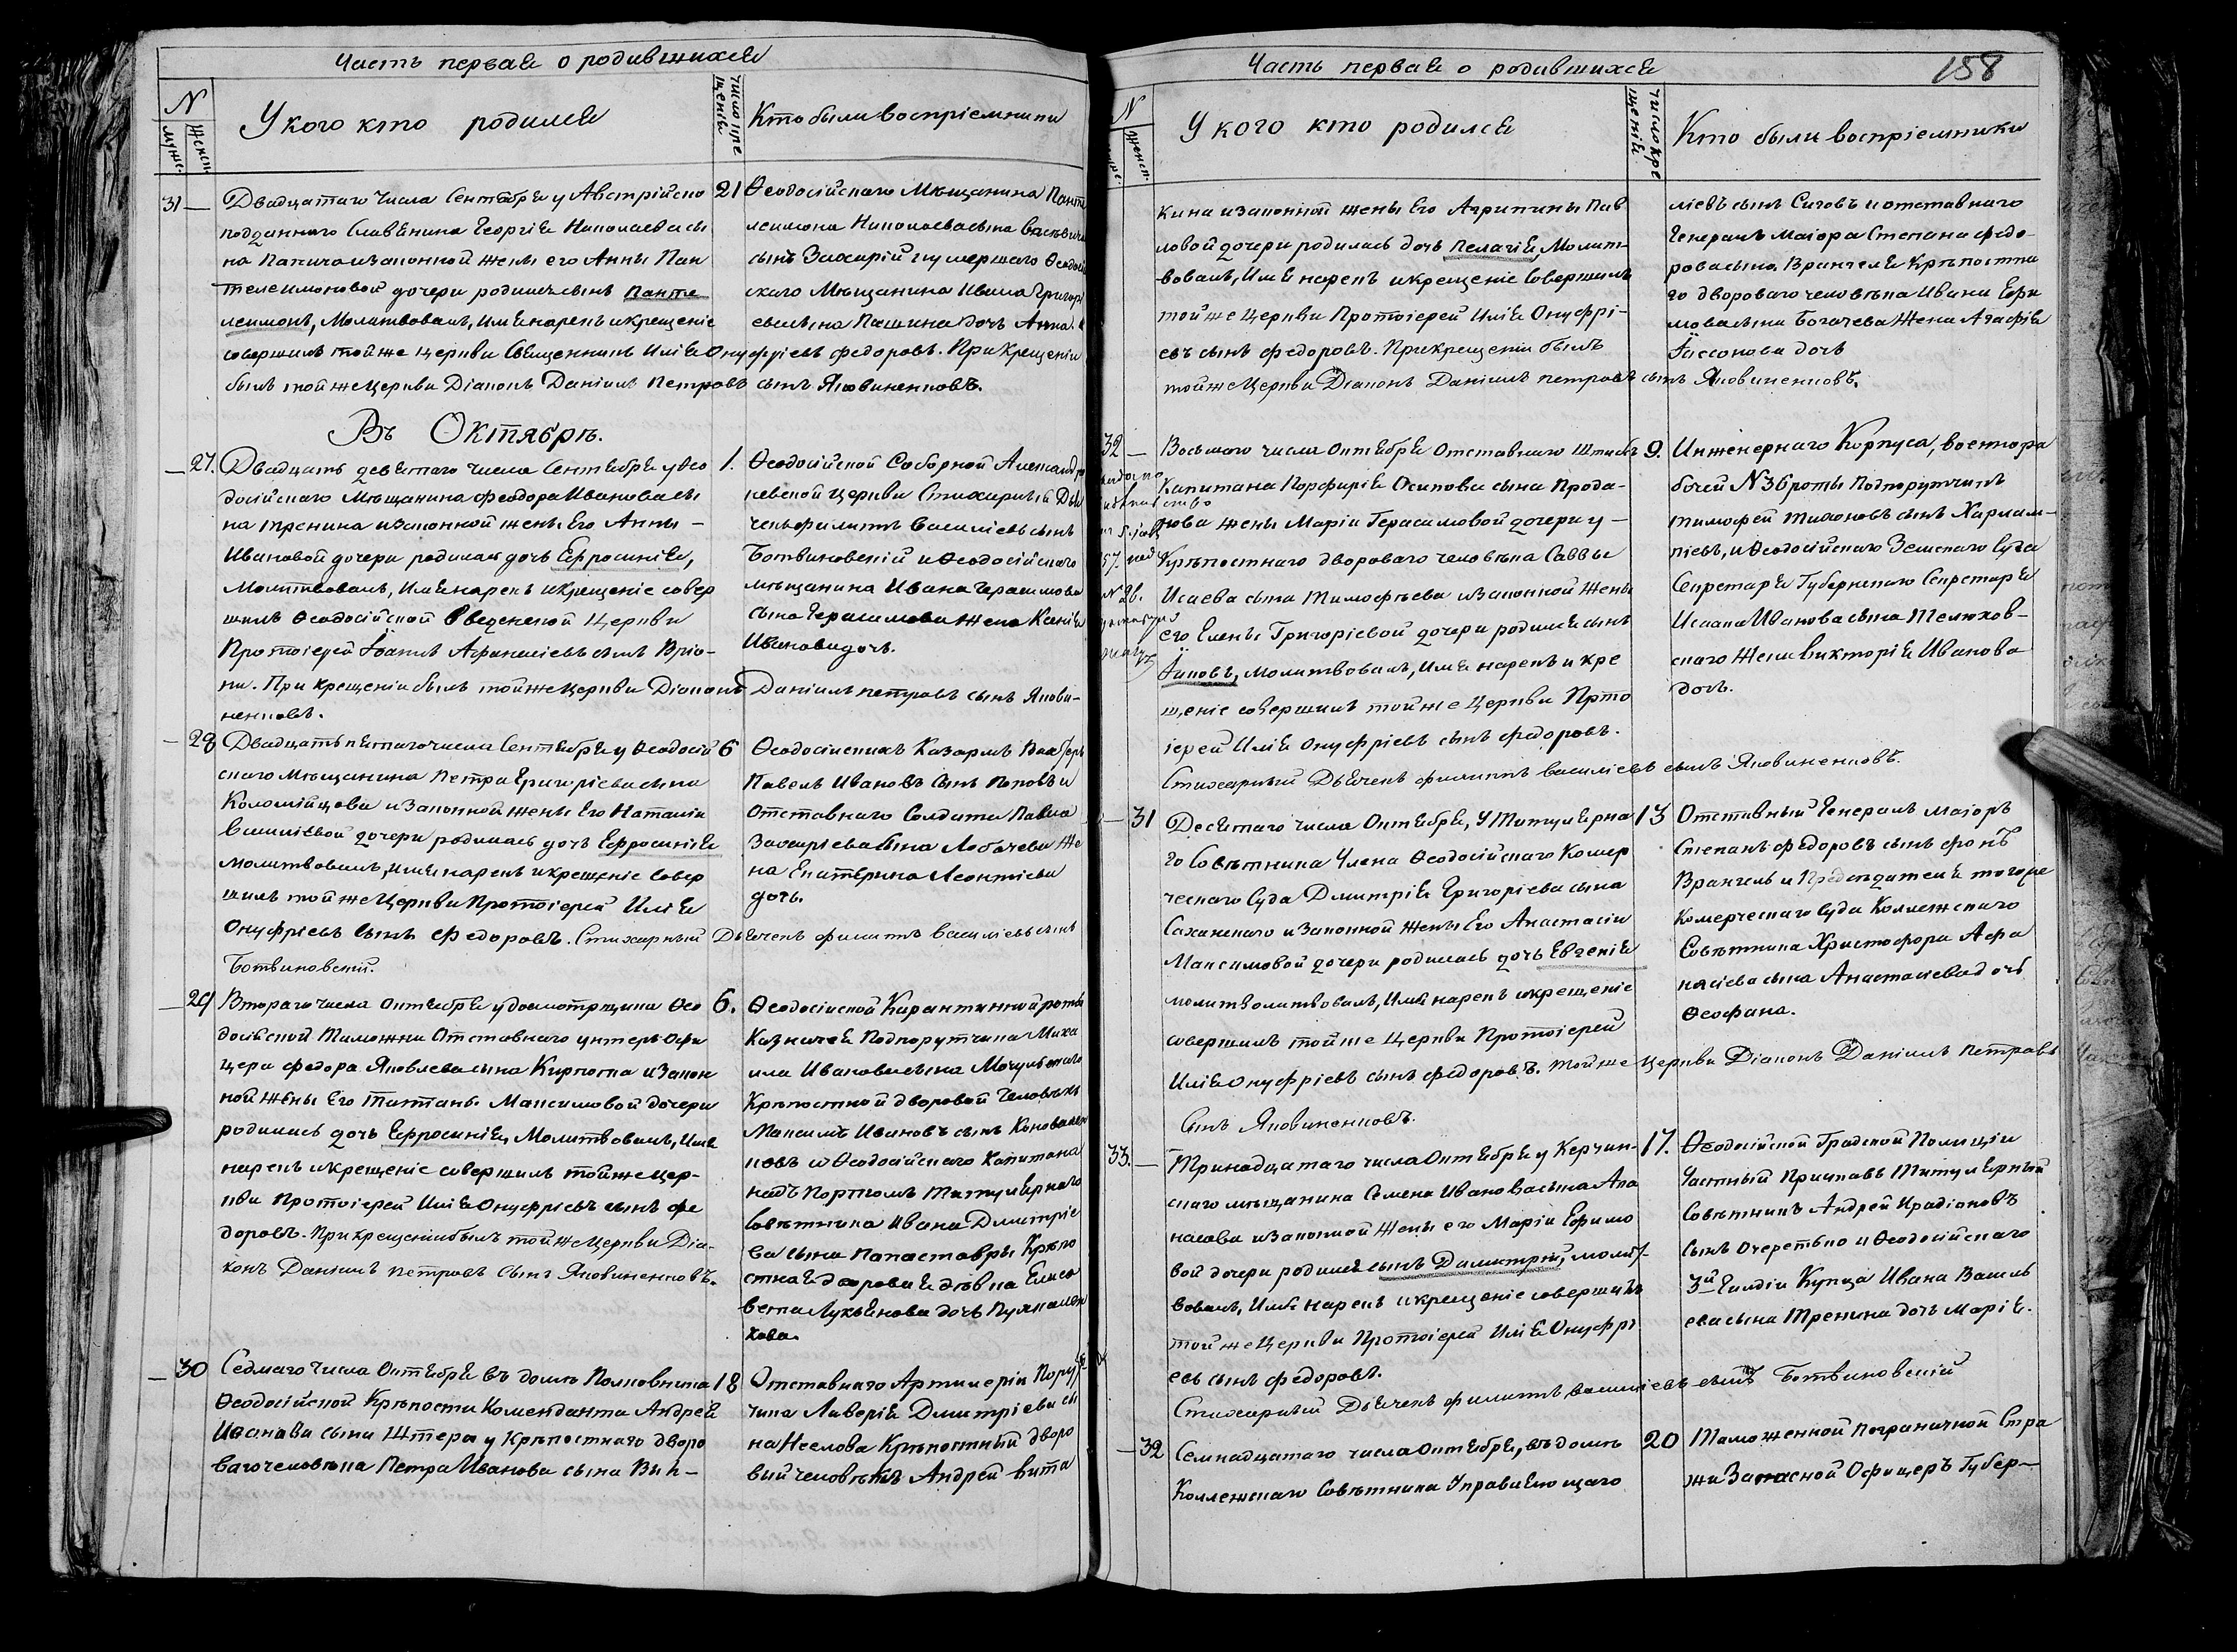 Часть первая о родившихся
N
Мужс.
Женск.
У кого кто родился
число кре
щенія
Кто были воспріемники
31 —
Двадцатаго числа Сентября у Австрійско
подданнаго Славянина Георгія Николаева сы
на Папича и законной жены его Анны Пан
телеимоновой дочери родился сынъ Панте
леимонъ, Молитвовалъ, Имя нарекъ и крещеніе
совершилъ той же церкви Священникъ Илія Онуфріевъ Федоровъ. При крещеніи
былъ той же Церкви Діаконъ Даніилъ Петровъ сынъ Яковиненковъ.
21
Ѳеодосійскаго Мѣщанина Панте
леимона Николаева сына
сынъ Захарій и умершаго Ѳеодосій
скаго Мѣщанина Ивана Григорь
ева сына Пашина дочь Анна.
Въ Октябрѣ.
— 27.
Двадцать девятаго числа Сентября у Ѳео
досійскаго Мѣщанина Феодора Иванова сы
на Тренина и законной жены Его Анны —
Ивановой дочери родилась дочь Ефросинія,
Молитвовалъ, Имя нарекъ и крещеніе совер
шилъ Ѳеодосійской Введенской Церкви
Протоіерей Іоаннъ Афанасіевъ сынъ Вріо-
ни. При крещеніи былъ той же Церкви Діаконъ Даніилъ Петровъ сынъ Якови-
ненковъ.
1.
Ѳеодосійской Соборной Александро
невской Церкви Стихарный Дья
чекъ Филиппъ Василіевъ сынъ
Ботвиновскій и Ѳеодосійскаго
мѣщанина Ивана Герасимова
сына Герасимова жена Ксенія
Иванова дочь.
— 28
Двадцать пятаго числа Сентября у Ѳеодосій
скаго Мѣщанина Петра Григоріева сына
Коломійцова и Законной жены Его Наталіи
Василіевой дочери родилась дочь Ефросинія
молитвовалъ, имя нарекъ и крещеніе Совер
шилъ той же Церкви Протоіерей Илія
Онуфріевъ сынъ Федоровъ. Стихарный Дьячекъ Филиппъ Василіевъ сынъ
Ботвиновскій.
6
Ѳеодосійскихъ Казармъ
Павелъ Ивановъ Сынъ Поповъ и
Отставнаго Солдата Павла
Захаріева сына Лобачева Же
на Екатерина Леонтіева
дочь.
— 29
Втораго числа Октября у досмотрщика Ѳео
досійской Таможни Отставнаго унтеръ Офи
цера Федора Яковлева сына Кирпоты и Закон
ной жены Его Татьяны Максимовой дочери
родилась дочь Ефросинія, Молитвовалъ, Имя
нарекъ и крещеніе совершилъ той же Цер-
кви Протоіерей Илія Онуфріевъ сынъ Фе
доровъ. При крещеніи былъ той же Церкви Діа-
конъ Даніилъ Петровъ Сынъ Яковиненковъ.
6.
Ѳеодосійской Карантинной роты
Казначея Подпорутчика Миха
ила Иванова сына Мочульскаго
Крѣпостной дворовой Человѣкъ
Максимъ Ивановъ сынъ
ковъ и Ѳеодосійскаго Капитана
надъ Портомъ Титулярнаго
Совѣтника Ивана Дмитріе
ва сына Папаставры Крѣпо
стная дворовая дѣвка Елиса
вета Лукьянова дочь
кова.
— 30
Седмаго числа Октября въ домѣ Полковника
Ѳеодосійской Крѣпости Коменданта Андрея
Иванова сына Штера у Крѣпостнаго дворо
ваго человѣка Петра Иванова сына Вик-
18
Отставнаго Артилеріи Порут
чика Лаверія Дмитріева сы
на Неелова Крѣпостный дворо
вый человѣкъ Андрей Вита
Часть первая о родившихся
158
N
Женск.
У кого кто родился
число кре
щенія
Кто были воспріемники
кина и законной жены Его Агрипины Пав
ловой дочери родилась дочь Пелагія, Молит-
вовалъ, Имя нарекъ и крещеніе Совершилъ
той же Церкви Протоіерей Илія Онуфрі-
евъ сынъ Федоровъ. При крещеніи былъ
той же Церкви Діаконъ Даніилъ Петровъ сынъ Яковиненковъ.
ліевъ сынъ Сиговъ и отставнаго
Генералъ Маіора Степана Федо-
рова сына Врангеля Крѣпостна
го двороваго человѣка Ивана Ефи
мова сына Богачева Жена Агафія
Іассонова дочь
32 —
Восьмаго числа Октября Отставнаго Штабсъ
Капитана Порфирія Осипова сына Прода-
нова жены Маріи Герасимовой дочери у —
Крѣпостнаго двороваго человѣка Саввы
Исаева сына Тимофѣева и законной жены
его Елены Григоріевой дочери родился сынъ
Іаковъ, молитвовалъ, Имя нарекъ и кре
щеніе совершилъ той же Церкви Прто
іерей Илія Онуфріевъ сынъ Федоровъ.
Стихарный Дьячекъ Филиппъ Василіевъ сынъ Яковиненковъ.
9.
Инженернаго Корпуса, военнора
бочей N 36 роты Подпорутчикъ
Тимофей Тихоновъ сынъ Харлам-
піевъ, и Ѳеодосійскаго Земскаго Суда
Секретаря Губернскаго Секретаря
Исаака Иванова сына Телюхов-
скаго Жена Викторія Иванова
дочь.
— 31
Десятаго числа Октября, У Титулярна
го Совѣтника Члена Ѳеодосійскаго Комер
ческаго Суда Дмитрія Григоріева сына
Саханскаго и Законной Жены Его Анастасіи
Максимовой дочери родилась дочь Евгенія
молитволитвовалъ, Имя нарекъ и крещеніе
совершилъ той же Церкви Протоіерей
Илія Онуфріевъ сынъ Федоровъ. той же Церкви Діаконъ Даніилъ Петровъ
Сынъ Яковиненковъ.
13
Отставный Генералъ Маіоръ
Степанъ Федоровъ сынъ Фонъ
Врангель и Предсѣдателя того же
Комерческаго Суда Коллежскаго
Совѣтника Христофора Афа
насіева сына Анастасіева дочь
Ѳеофана.
33. —
Тринадцатаго числа Октября у Керчин-
скаго мѣщанина Семена Иванова сына Апа
насова и Законной Жены его Маріи Ефимо
вой дочери родился сынъ Димитрій, молит-
вовалъ, Имя нарекъ и крещеніе совершилъ
той же Церкви Протоіерей Илія Онуфрі
евъ сынъ Федоровъ.
Стихарный Дьячекъ Филиппъ Василіевъ сынъ Ботвиновскій
17.
Ѳеодосійской Градской Полиціи
Частный Приставъ Титулярный
Совѣтникъ Андрей Ирадіоновъ
сынъ Очеретько и Ѳеодосійскаго
3й Гилдіи Купца Ивана Василь
ева сына Тренина дочь Марія.
— 32
Семнадцатаго числа Октября, въ домѣ
Коллежскаго Совѣтника Управляющаго
20
Таможенной Пограничной Стра
жи Запасной Офицеръ Губер-